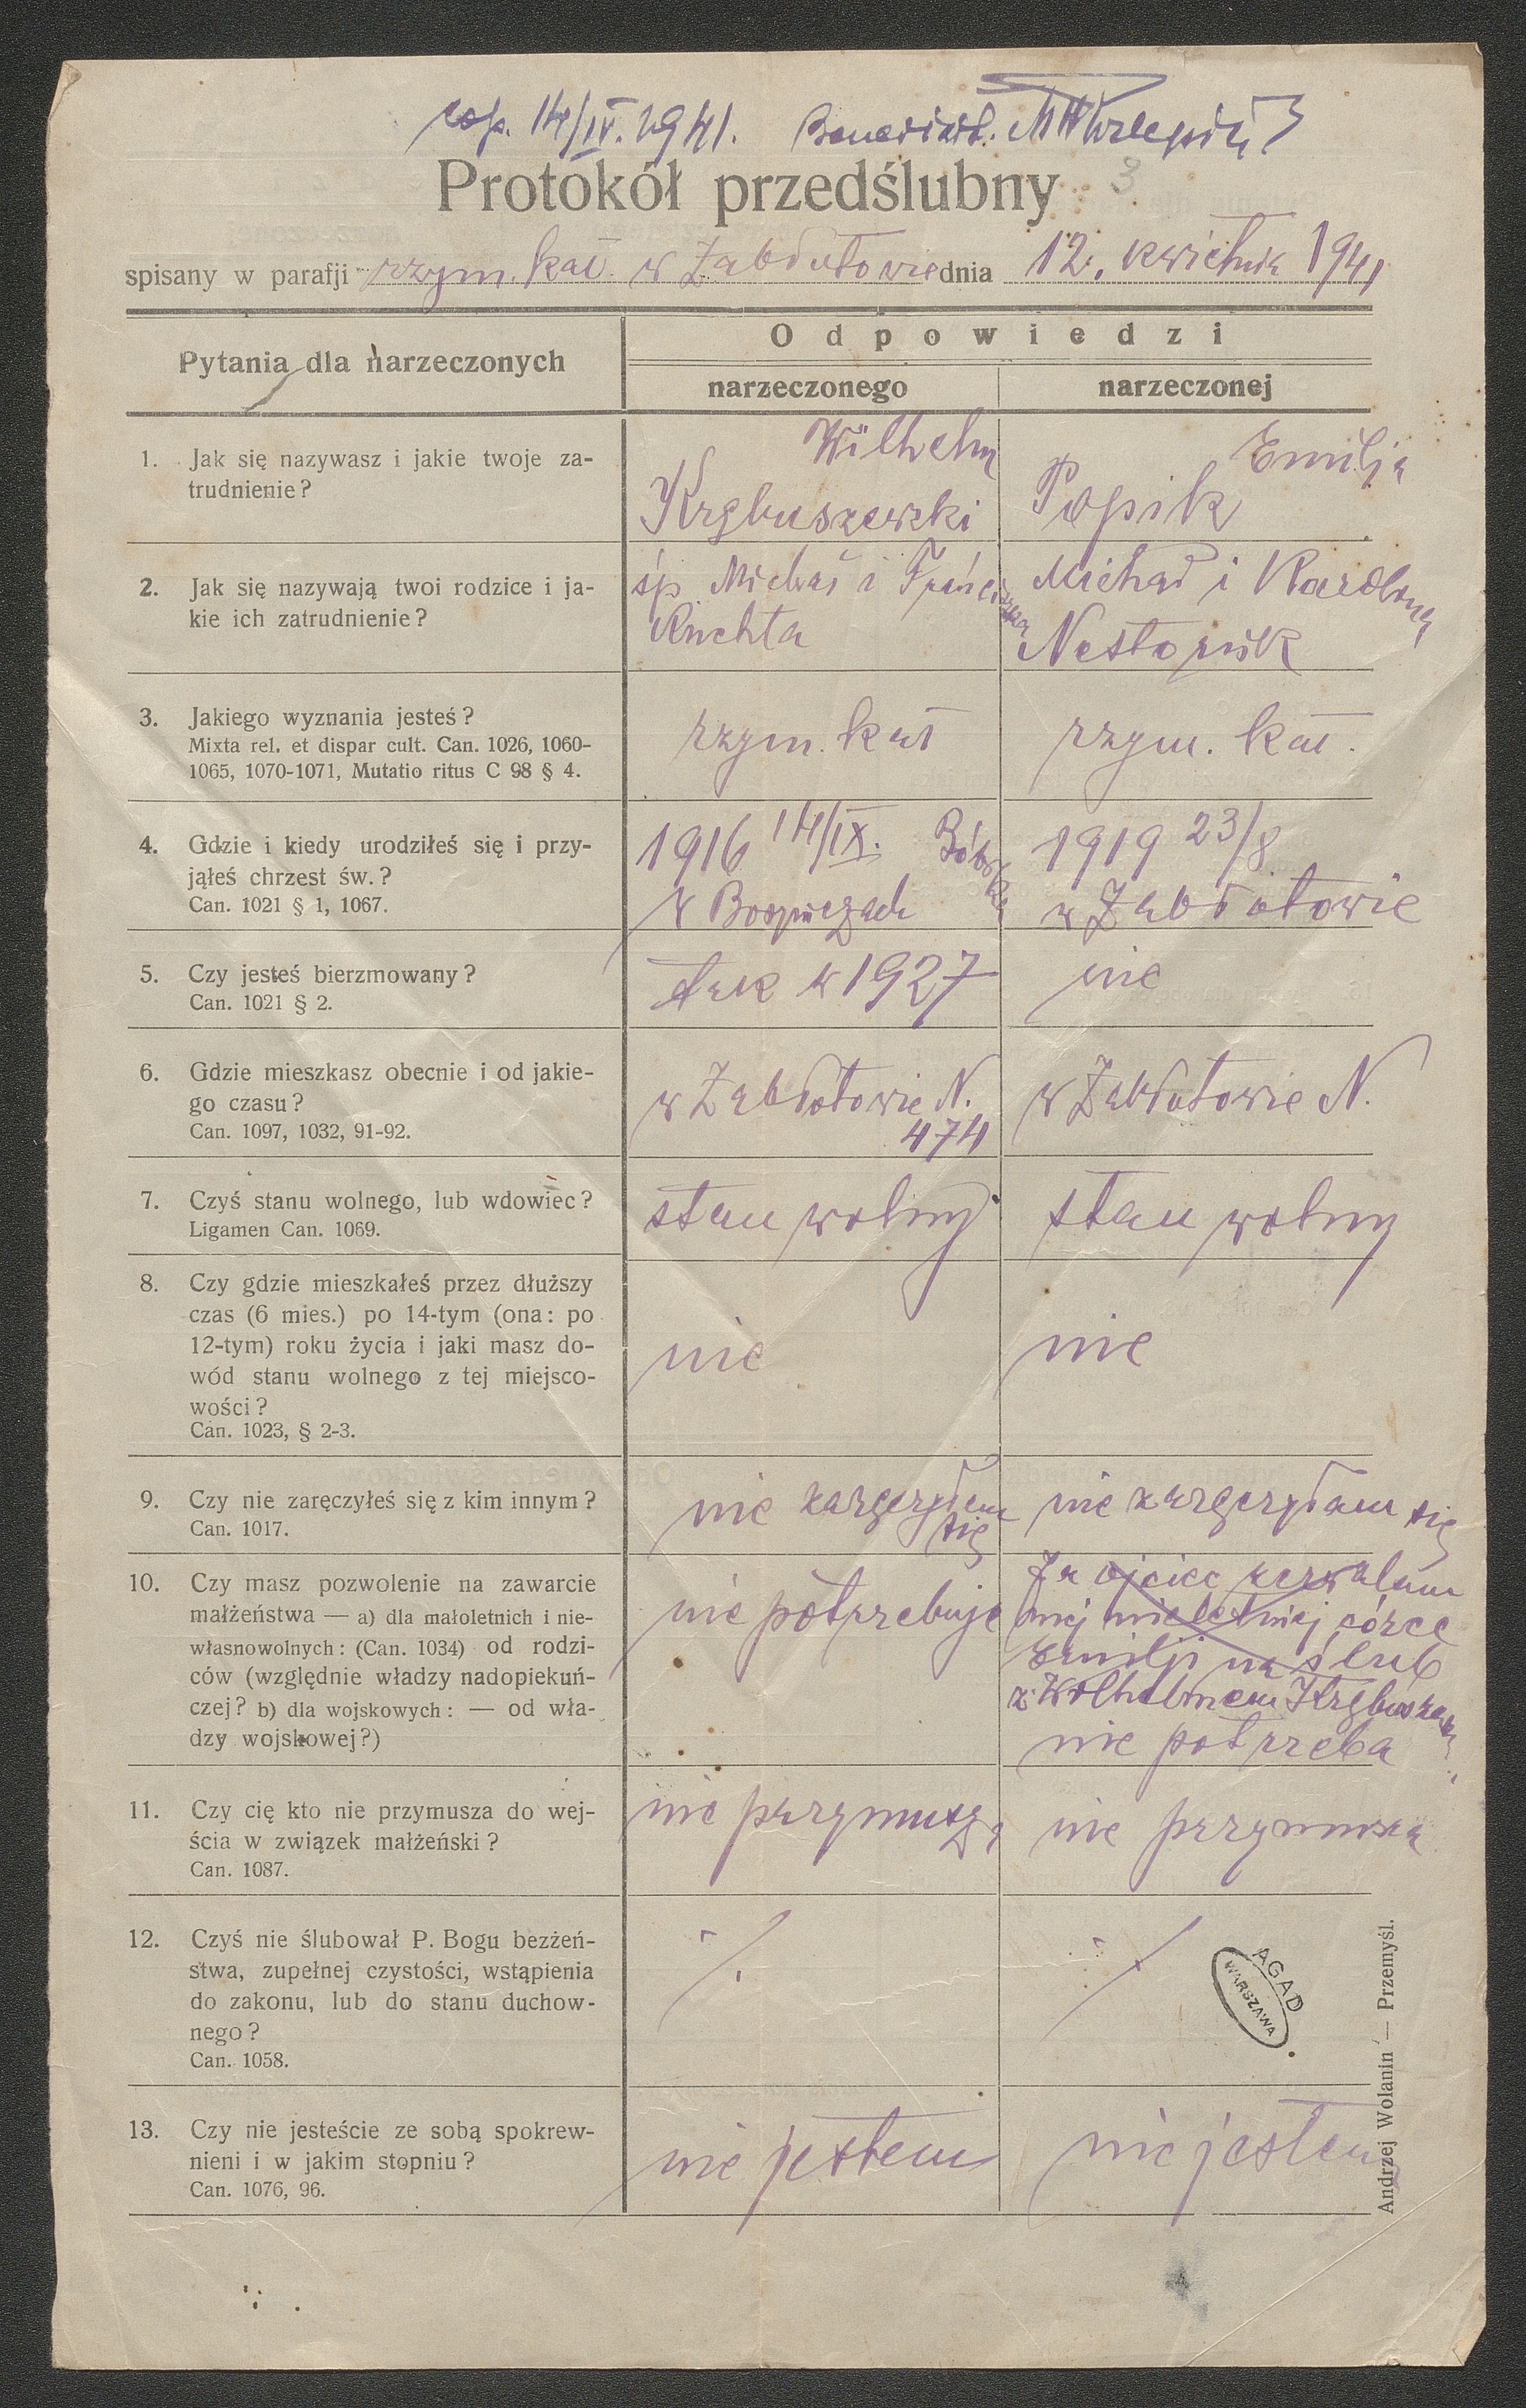 cop. 14/IV. 1941.
Protokół przedślubny 3
spisany w parafji rzym. kat. w Zabłotowie dnia 12. kwietnia 1941
Pytania dla narzeczonych
Odpowiedzi
narzeczonego
narzeczonej
1. Jak się nazywasz i jakie twoje za-
trudnienie?
Wilhelm
Krębuszewski
Emilja
Popik
2. Jak się nazywają twoi rodzice i ja-
kie ich zatrudnienie?
śp. Michał i Franciszka
Ruchta
Michał i Karolina
Nestoriuk
3. Jakiego wyznania jesteś?
Mixta rel. et dispar cult. Can. 1026, 1060-
1065, 1070-1071, Mutatio ritus C 98 § 4.
rzym. kat
rzym. kat.
4. Gdzie i kiedy urodziłeś się i przy-
jąłeś chrzest św.?
Can. 1021 § 1, 1067.
1916 14/IX. Bóbrka
w
1919 23/8
w Zabłotowie
5. Czy jesteś bierzmowany?
Can. 1021 § 2.
tak w 1927
nie
6. Gdzie mieszkasz obecnie i od jakie-
go czasu?
Can. 1097, 1032, 91-92.
w Zabłotowie N.
474
w Zabłotowie N.
7. Czyś stanu wolnego, lub wdowiec?
Ligamen Can. 1069.
stan wolny
stan wolny
8. Czy gdzie mieszkałeś przez dłuższy
czas (6 mies.) po 14-tym (ona: po
12-tym) roku życia i jaki masz do-
wód stanu wolnego z tej miejsco-
wości?
Can. 1023, § 2-3.
nie
nie
9. Czy nie zaręczyłeś się z kim innym?
Can. 1017.
nie zaręczyłem
się
nie zaręczyłam się
10. Czy masz pozwolenie na zawarcie
małżeństwa — a) dla małoletnich i nie-
własnowolnych: (Can. 1034) od rodzi-
ców (względnie władzy nadopiekuń-
czej? b) dla wojskowych: — od wła-
dzy wojskowej?)
nie potrzebuje
Ja ojciec zezwalam
mej nieletniej córce
Emilji na ślub
z Wilhelmem Krębuszewskim
nie potrzeba
11. Czy cię kto nie przymusza do wej-
ścia w związek małżeński?
Can. 1087.
nie przymusza
nie przymusza
12. Czyś nie ślubował P. Bogu bezżeń-
stwa, zupełnej czystości, wstąpienia
do zakonu, lub do stanu duchow-
nego?
Can. 1058.
AGAD
WARSZAWA
13. Czy nie jesteście ze sobą spokrew-
nieni i w jakim stopniu?
Can. 1076, 96.
nie jestem
nie jestem
Andrzej Wolanin — Przemyśl.